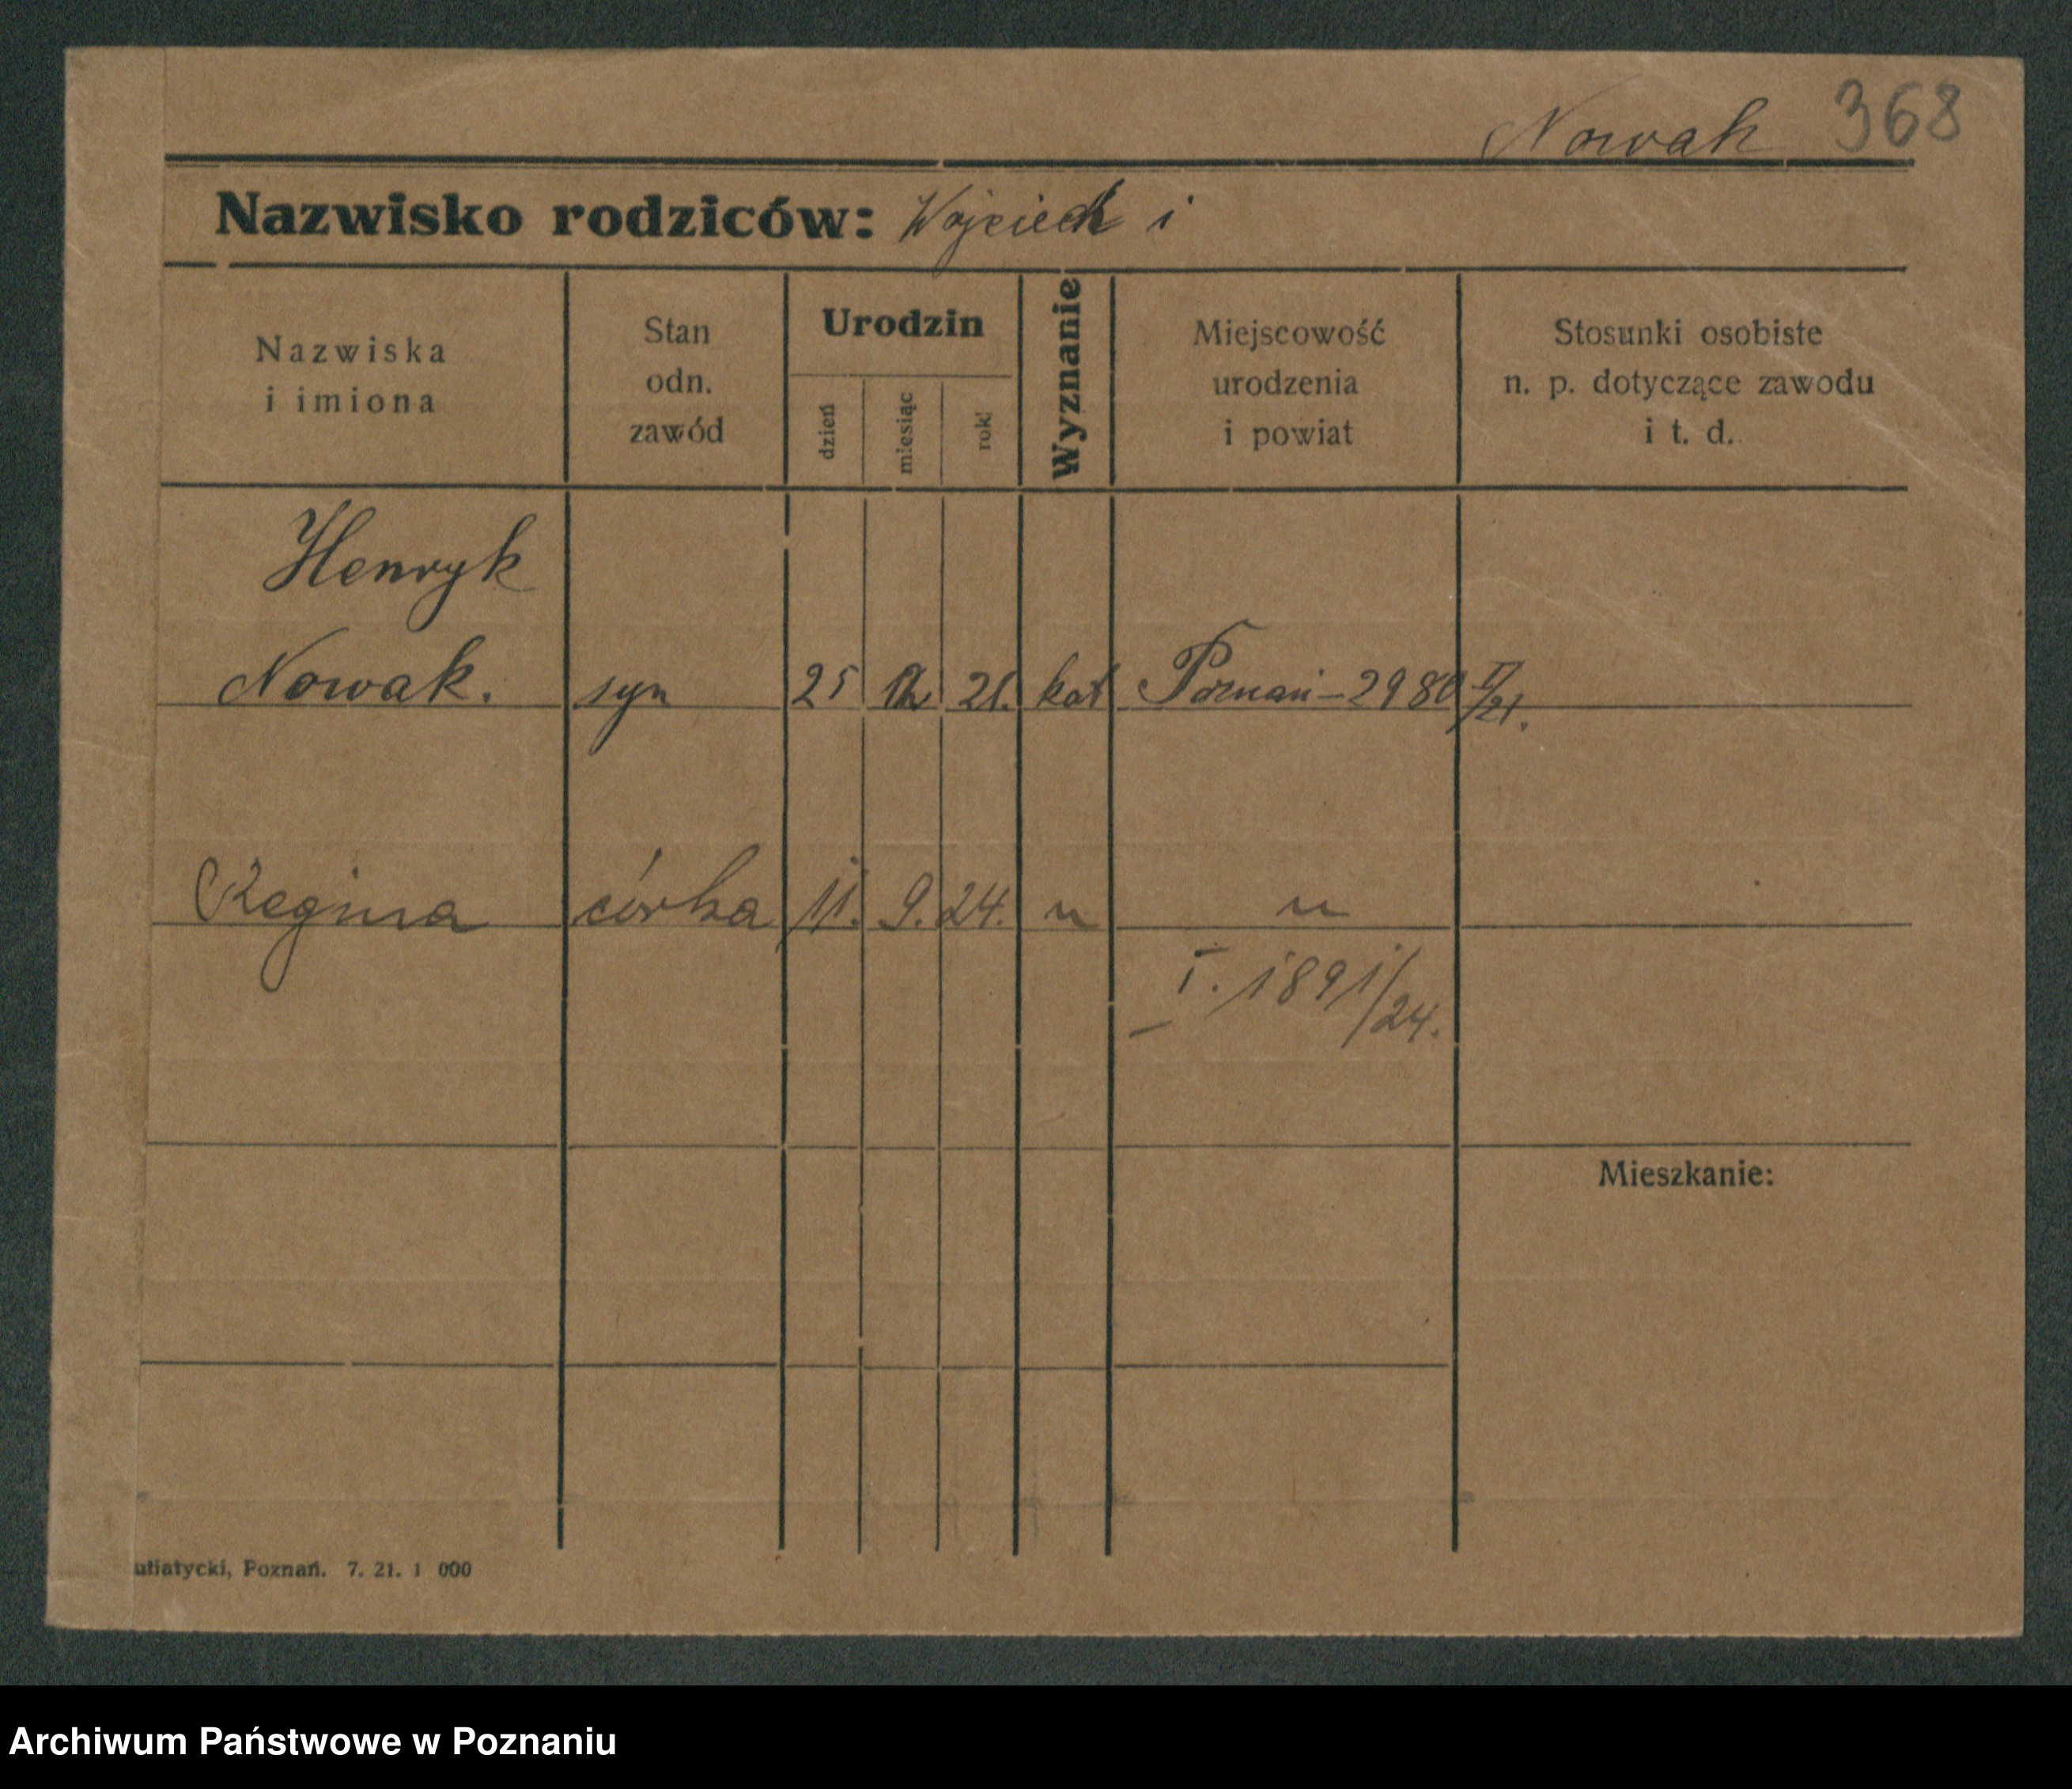 Nowak 368
Nazwisko rodziców: Wojciech i
Nazwiska
i imiona
Stan
odn.
zawód
Urodzin
dzień
miesiąc
rok
Wyznanie
Miejscowość
urodzenia
i powiat
Stosunki osobiste
n. p. dotyczące zawodu
i t. d.
Henryk
Nowak. syn 25 12 21. kat Poznań - 2980 /21.
Regina córka 11. 9. 24. " "
I. 1891/24.
Mieszkanie:
utiatycki, Poznań. 7. 21. 1 000
Archiwum Państwowe w Poznaniu